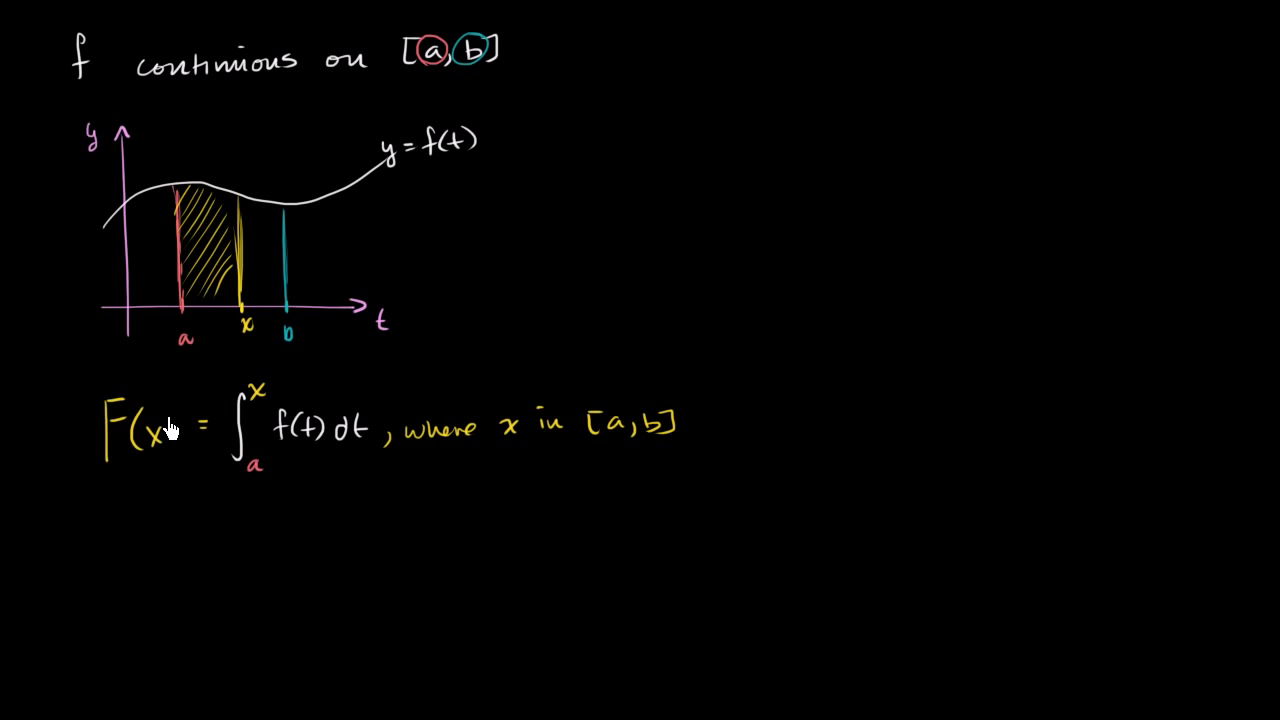 f continuous on [a, b]
y
y = f(t)
t
a
x
b
F(x = ∫ₐˣ f(t) dt, where x in [a, b]